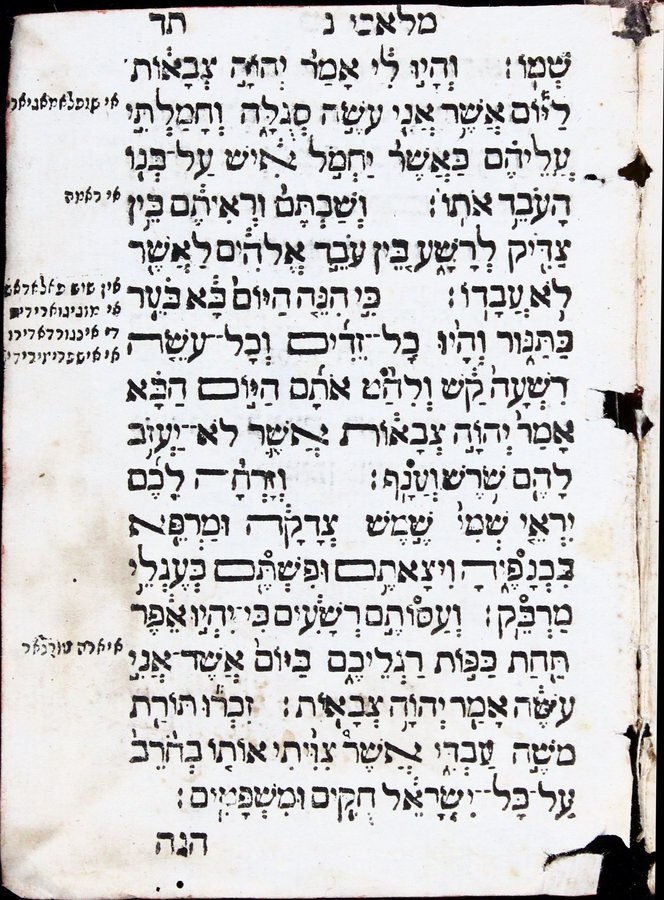 מלאכי ג תד
שְׁמוֹ׃ וְהָיוּ לִי אָמַר יְהוָה צְבָאוֹת
לַיּוֹם אֲשֶׁר אֲנִי עֹשֶׂה סְגֻלָּה וְחָמַלְתִּי
עֲלֵיהֶם כַּאֲשֶׁר יַחְמֹל אִישׁ עַל־בְּנוֹ
הָעֹבֵד אֹתוֹ׃ וְשַׁבְתֶּם וּרְאִיתֶם בֵּין
צַדִּיק לְרָשָׁע בֵּין עֹבֵד אֱלֹהִים לַאֲשֶׁר
לֹא עֲבָדוֹ׃ כִּי הִנֵּה הַיּוֹם בָּא בֹּעֵר
כַּתַּנּוּר וְהָיוּ כָל־זֵדִים וְכָל־עֹשֵׂה
רִשְׁעָה קַשׁ וְלִהַט אֹתָם הַיּוֹם הַבָּא
אָמַר יְהוָה צְבָאוֹת אֲשֶׁר לֹא־יַעֲזֹב
לָהֶם שֹׁרֶשׁ וְעָנָף׃ וְזָרְחָה לָכֶם
יִרְאֵי שְׁמִי שֶׁמֶשׁ צְדָקָה וּמַרְפֵּא
בִּכְנָפֶיהָ וִיצָאתֶם וּפִשְׁתֶּם כְּעֶגְלֵי
מַרְבֵּק׃ וְעַסּוֹתֶם רְשָׁעִים כִּי־יִהְיוּ אֵפֶר
תַּחַת כַּפּוֹת רַגְלֵיכֶם בַּיּוֹם אֲשֶׁר־אֲנִי
עֹשֶׂה אָמַר יְהוָה צְבָאוֹת׃ זִכְרוּ תּוֹרַת
מֹשֶׁה עַבְדִּי אֲשֶׁר צִוִּיתִי אוֹתוֹ בְחֹרֵב
עַל־כָּל־יִשְׂרָאֵל חֻקִּים וּמִשְׁפָּטִים׃
הִנֵּה